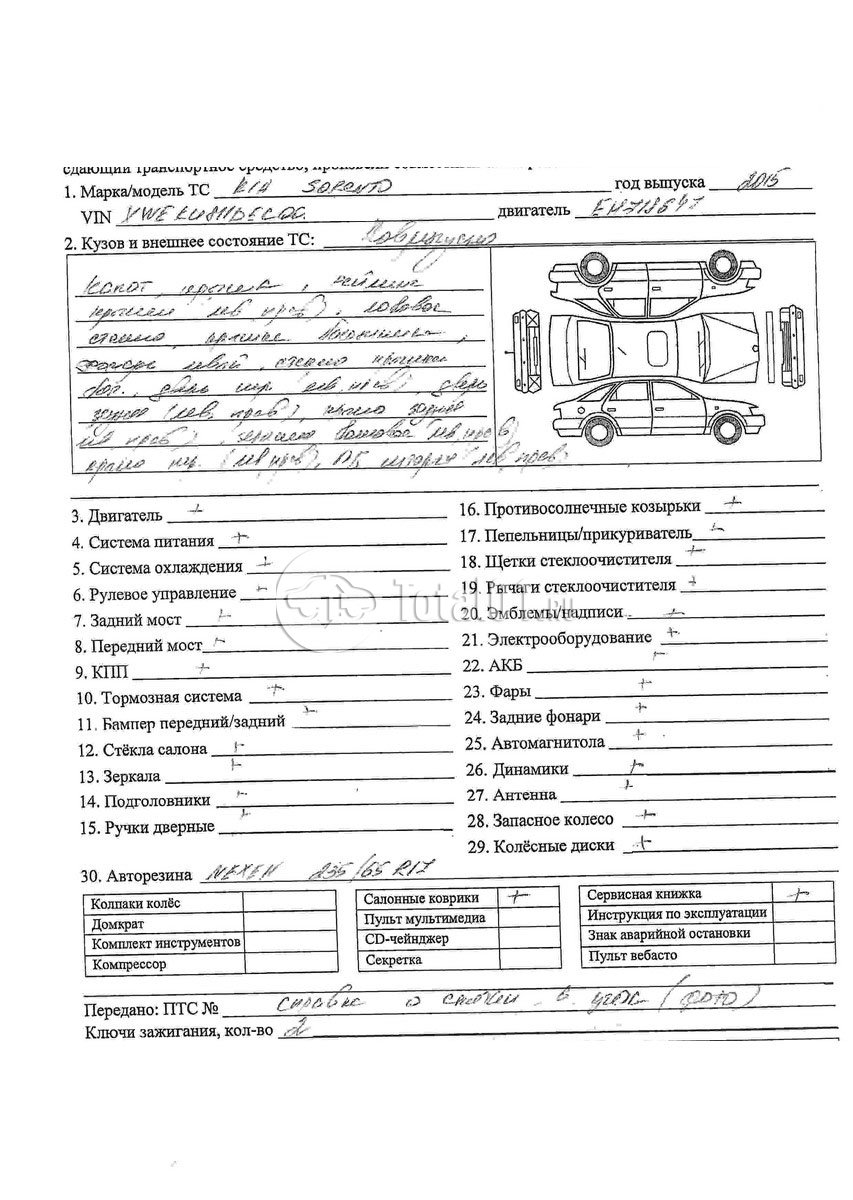 сдающий транспортное средство, произвели
1. Марка/модель ТС KIA SORENTO год выпуска 2015
VIN двигатель
2. Кузов и внешнее состояние ТС:
Капот, крышка,
крыши (лев прав), лобовое
стекло,
левый, стекло
дверь пер (лев, прав), дверь
задняя (лев, прав), крыло заднее
лев прав), зеркало боковое лев прав)
крыло пер. (лев прав), лев прав.
3. Двигатель +
4. Система питания +
5. Система охлаждения +
6. Рулевое управление +
7. Задний мост +
8. Передний мост +
9. КПП +
10. Тормозная система +
11. Бампер передний/задний +
12. Стёкла салона +
13. Зеркала +
14. Подголовники +
15. Ручки дверные +
16. Противосолнечные козырьки +
17. Пепельницы/прикуриватель +
18. Щетки стеклоочистителя +
19. Рычаги стеклоочистителя +
20. Эмблемы/надписи +
21. Электрооборудование +
22. АКБ +
23. Фары +
24. Задние фонари +
25. Автомагнитола +
26. Динамики +
27. Антенна +
28. Запасное колесо +
29. Колёсные диски +
Total01.ru
30. Авторезина NEXEN 235/65 R17
Колпаки колёс
Домкрат
Комплект инструментов
Компрессор
Салонные коврики +
Пульт мультимедиа
CD-чейнджер
Секретка
Сервисная книжка +
Инструкция по эксплуатации
Знак аварийной остановки
Пульт вебасто
Передано: ПТС № справка о
Ключи зажигания, кол-во 2